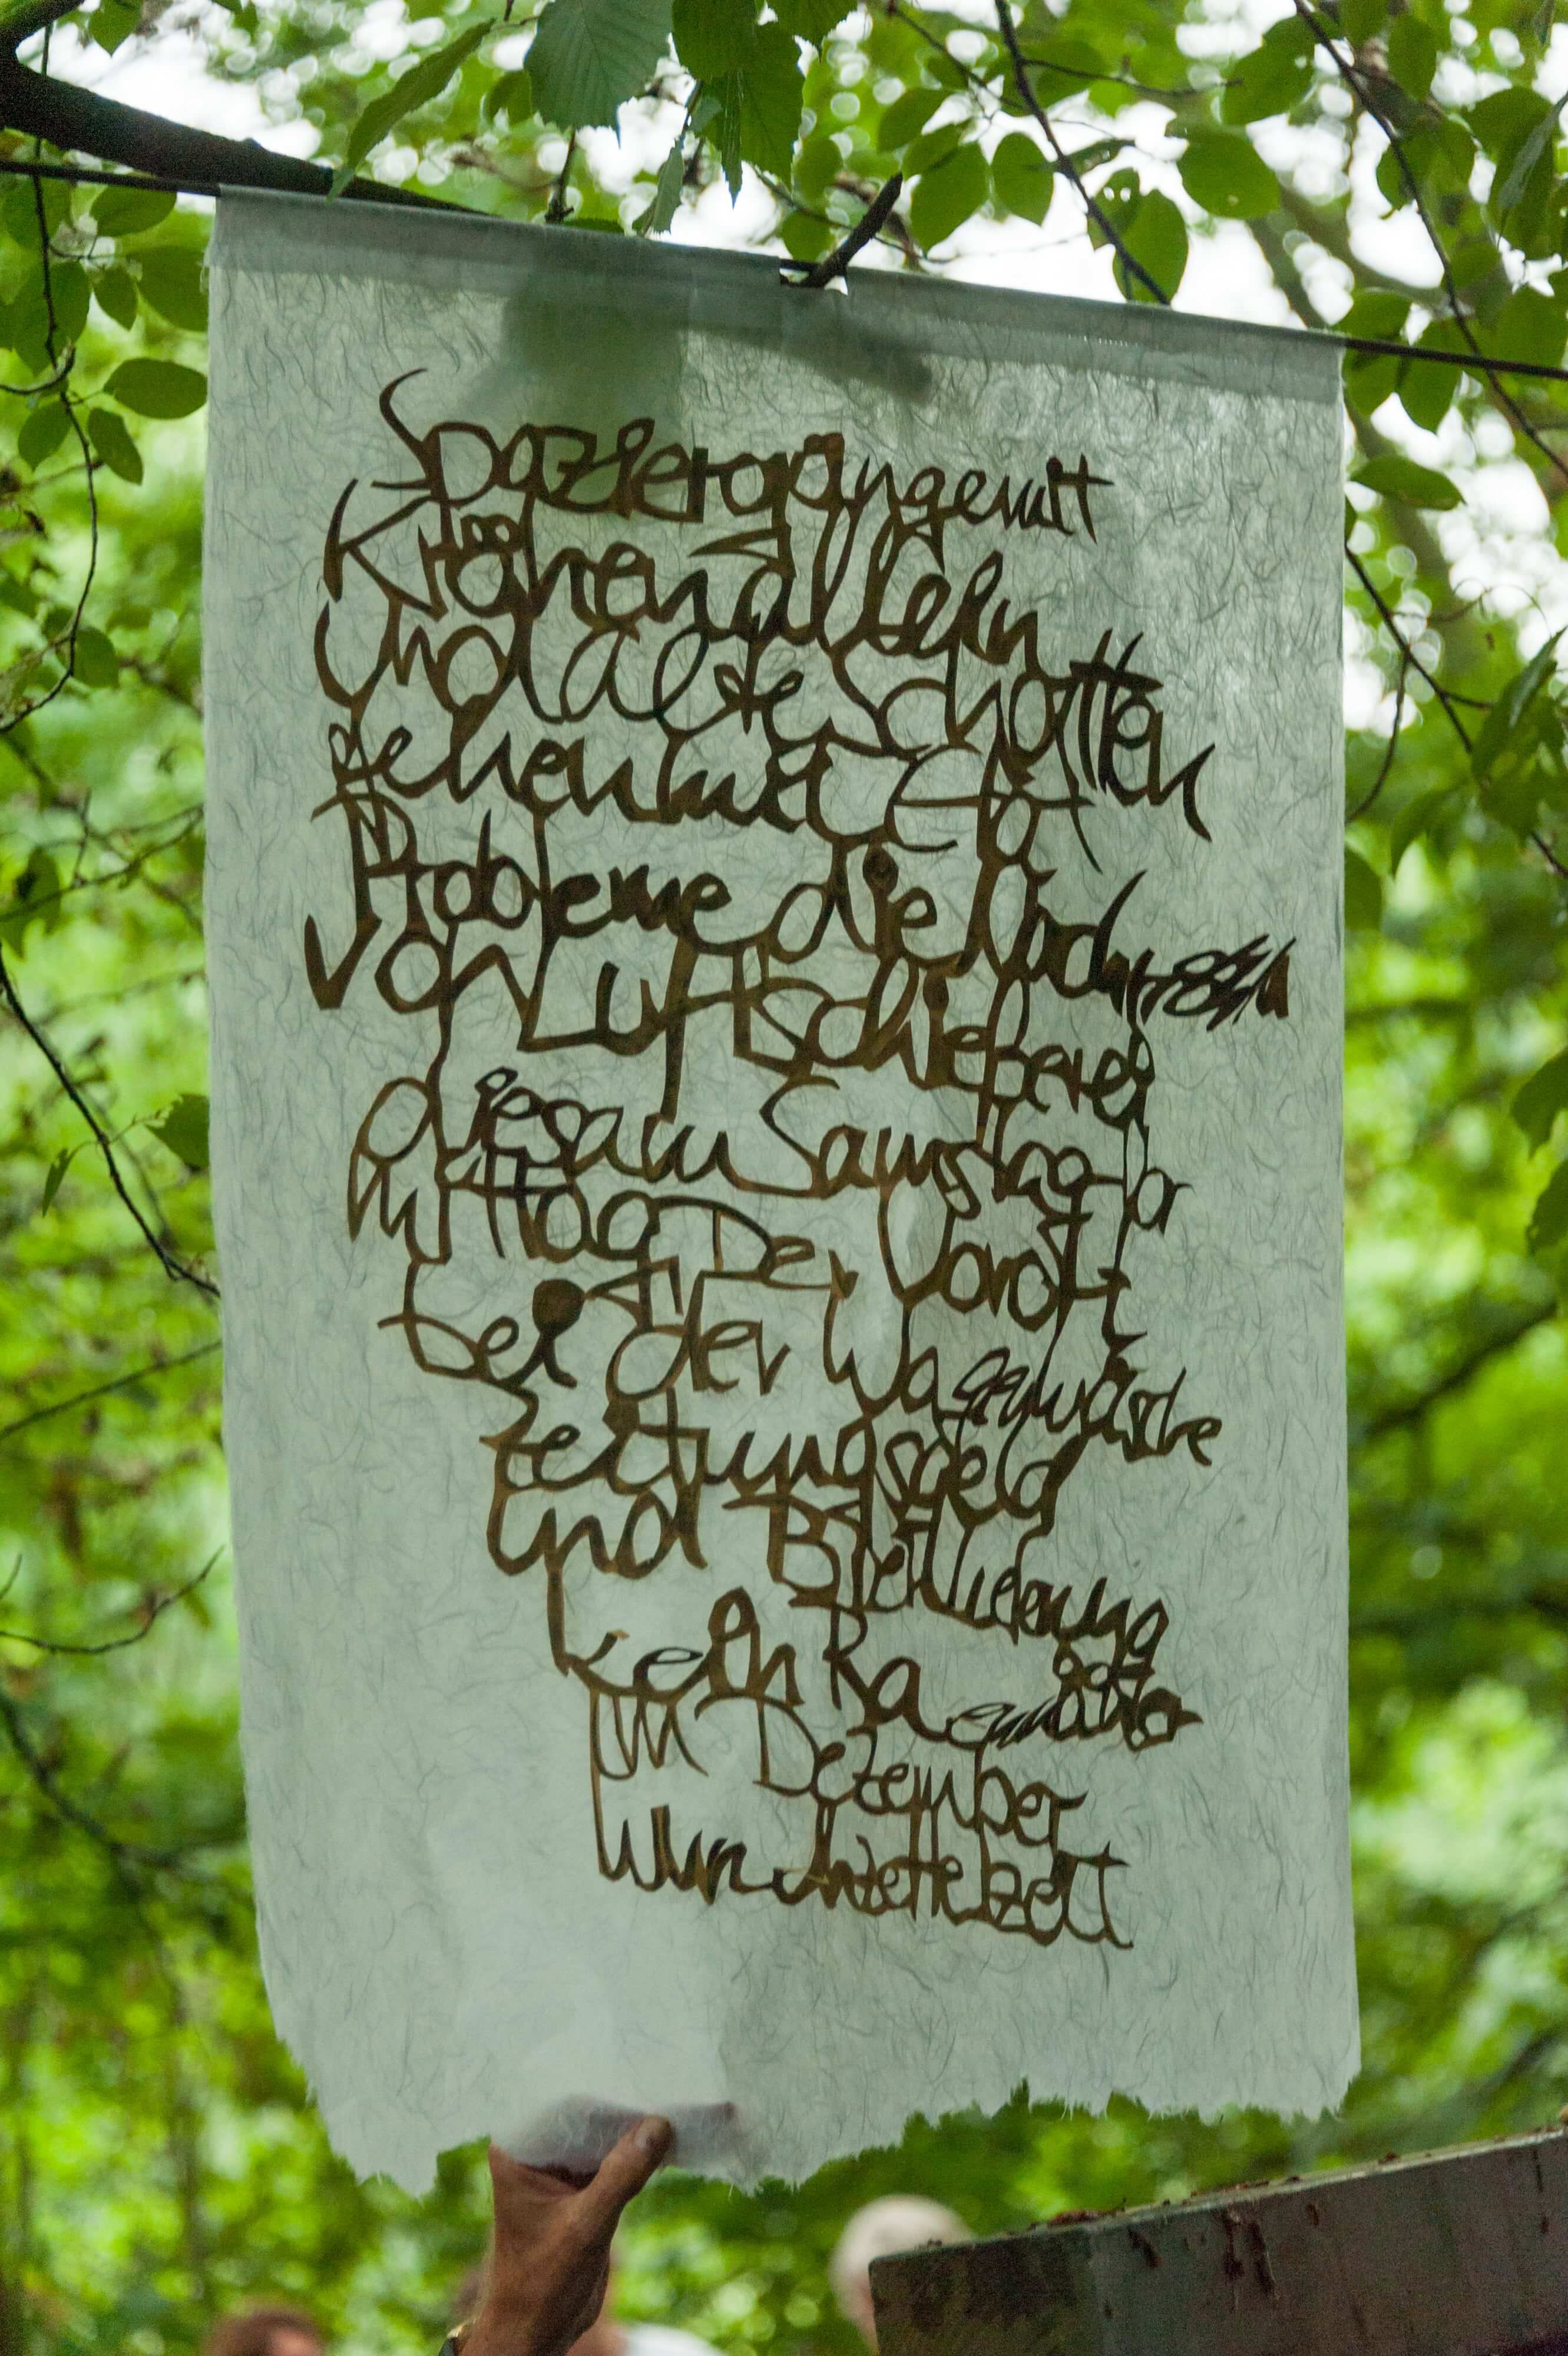 Spaziergänge mit
Krähen allein
Und alte Schotten
gehen mit
Probleme die Nachr
von Luftschieberei
dies am Samstag
mittag Der Vorort
bei der Wagenwäsche
Zeitungsgeld
und
kein Ra
Im Dezember
Wunschzettelzeit